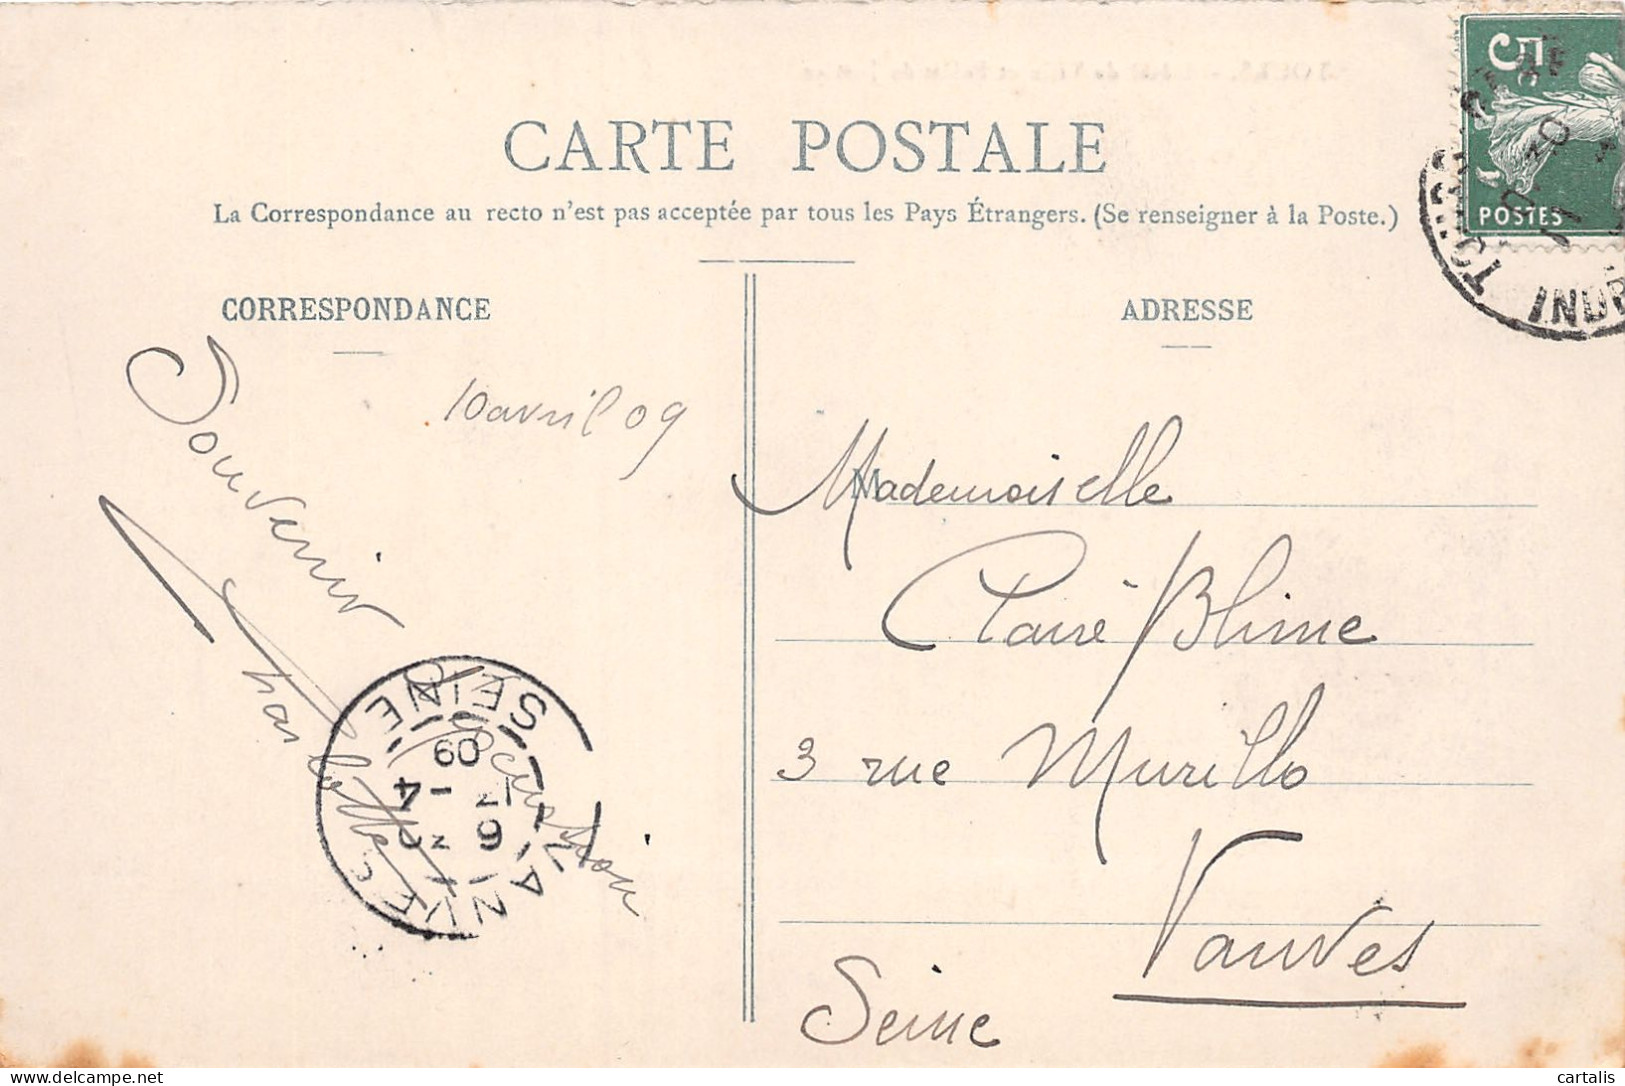 CARTE POSTALE
La Correspondance au recto n'est pas acceptée par tous les Pays Étrangers. (Se renseigner à la Poste.)
CORRESPONDANCE
ADRESSE
POSTES
10 avril 09
Souvenir
Mademoiselle
Claire Blime
3 rue Murillo
Vanves
Seine
VANVES
SEINE
09
delcampe.net
cartalis